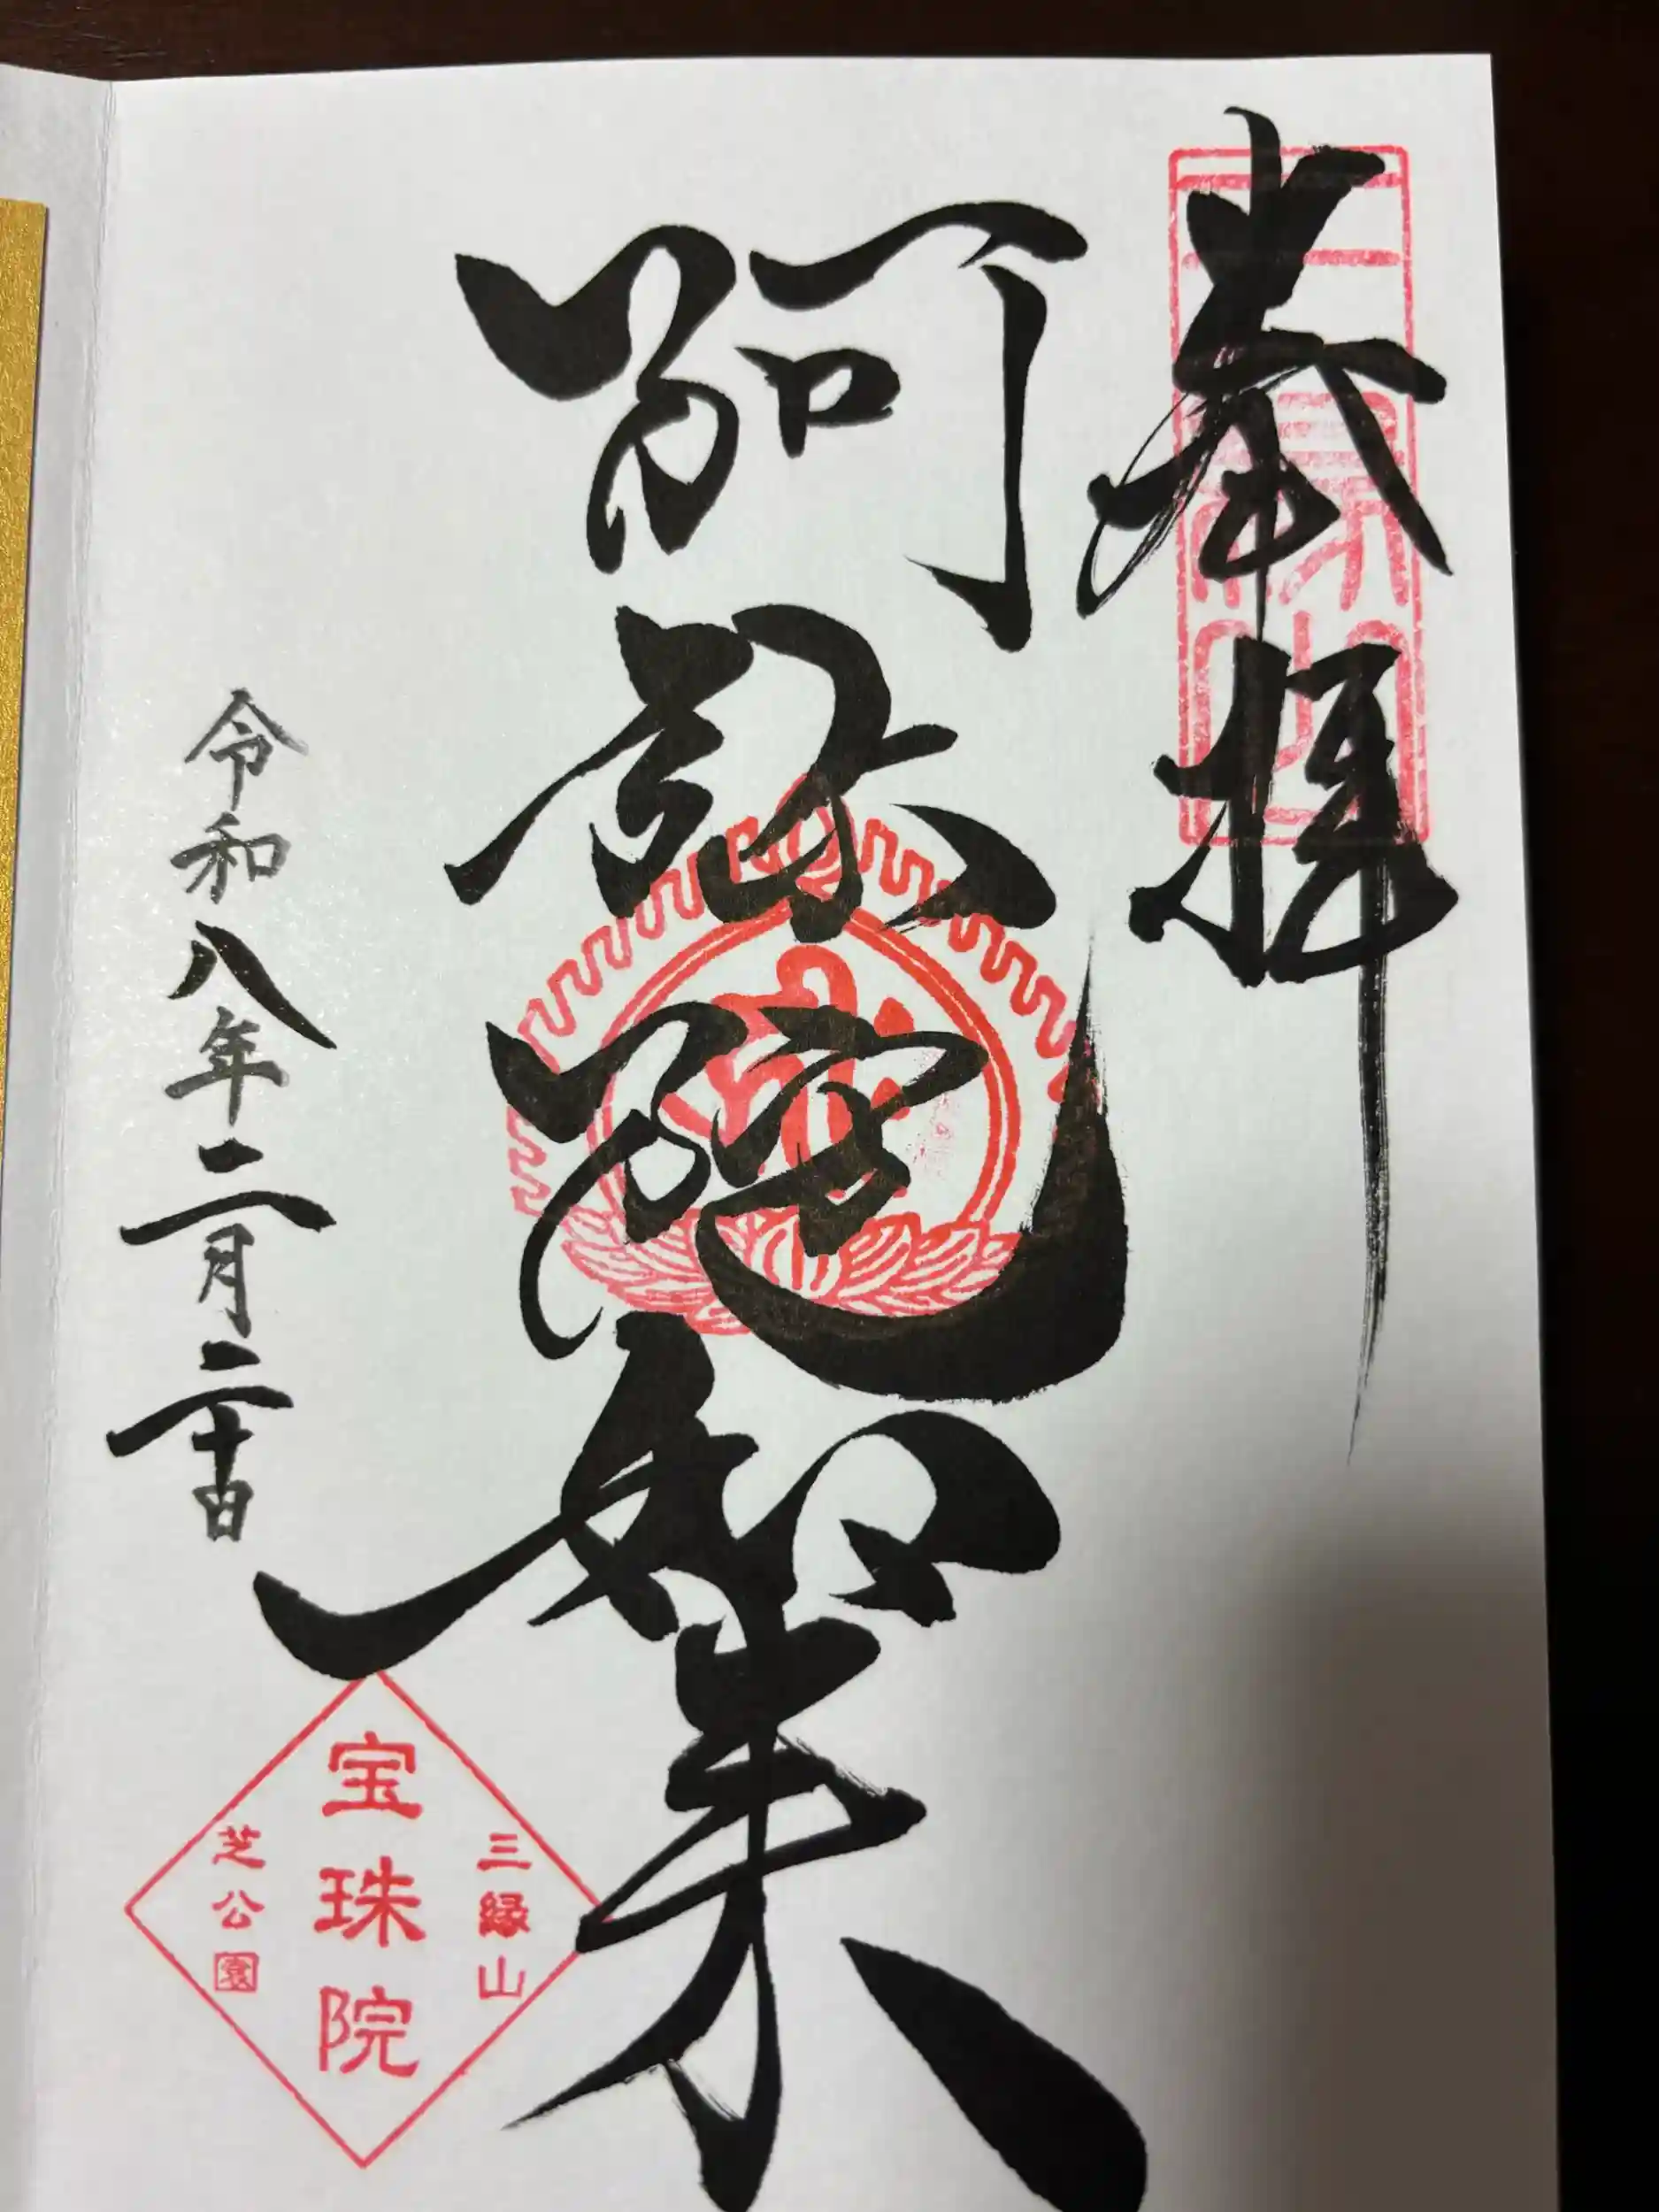 奉拝
三縁山
阿弥陀如来
令和八年二月二十日
三縁山
宝珠院
芝公園